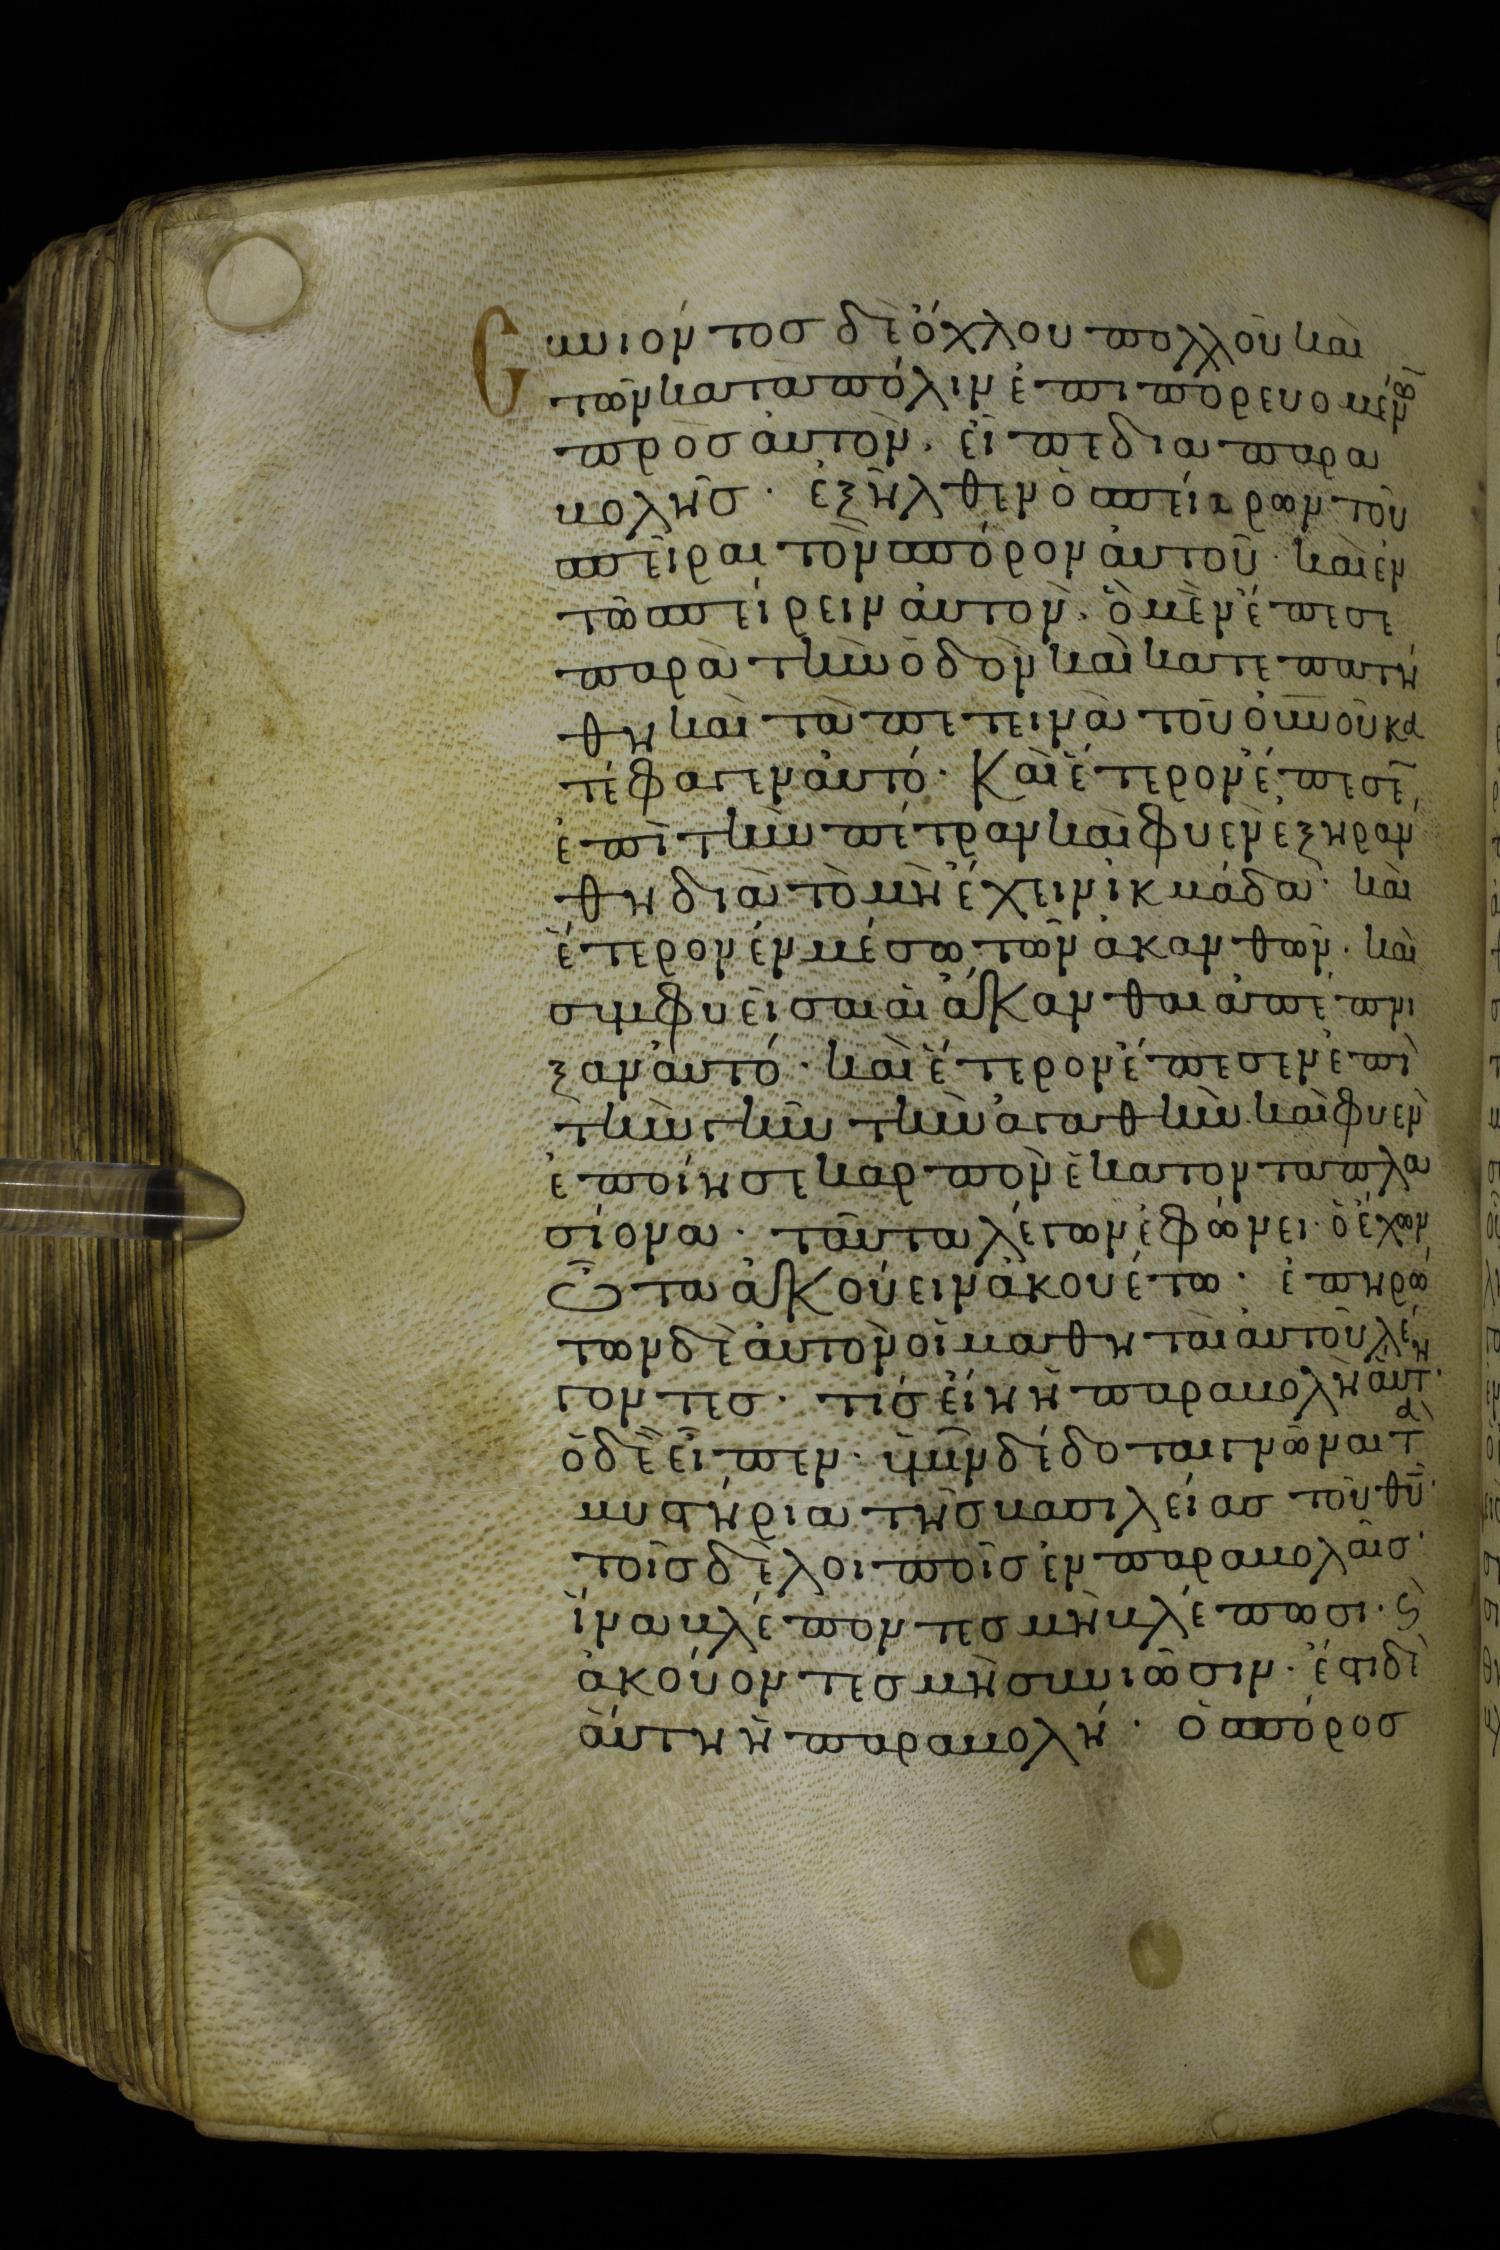 Συνιόντος δὲ ὄχλου πολλοῦ καὶ
τῶν κατα πόλιν ἐπιπορευομέν
πρὸς ἀυτὸν. εἶπε δια παρα
βολῆς. ἐξῆλθεν ὁ σπείρων τοῦ
σπεῖραι τὸν σπόρον ἀυτοῦ. καὶ ἐν
τῶ σπείρειν ἀυτὸν. ὃ μὲν ἔπεσε
παρὰ τὴν ὁδὸν καὶ κατεπατή
θη καὶ τὰ πετεινὰ τοῦ οὐνοῦ κα
τέφαγεν ἀυτό. Καὶ ἕτερον ἔπεσεν
ἐπὶ τὴν πέτραν καὶ φυὲν ἐξηράν
θη διὰ τὸ μὴ ἔχειν ἰκμάδα. καὶ
ἕτερον ἐν μέσω τῶν ἀκανθῶν. καὶ
συμφυεῖσαι αἱ ἄκανθαι ἀπέπνι
ξαν ἀυτό. καὶ ἕτερον ἔπεσεν ἐπὶ
τὴν γῆν τὴν ἀγαθὴν καὶ φυὲν
ἐποίησε καρπὸν ἑκατονταπλα
σίονα. ταῦτα λέγων ἐφώνει. ὁ ἔχων
ὦτα ἀκούειν ἀκουέτω. ἐπηρώ
των δὲ ἀυτὸν οἱ μαθηταὶ ἀυτοῦ λέ
γοντες. τίς εἴη ἡ παραβολὴ ἅυτη.
ὁ δὲ εἶπεν. ὑμῖν δέδοται γνῶναι τὰ
μυστήρια τῆς βασιλείας τοῦ θῦ.
τοῖς δὲ λοιποῖς ἐν παραβολαῖς.
ἵνα βλέποντες μὴ βλέπωσι. ϛ
ἀκούοντες μὴ συνιῶσιν. ἔστι δὲ
ἅυτη ἡ παραβολή. ὁ σπόρος